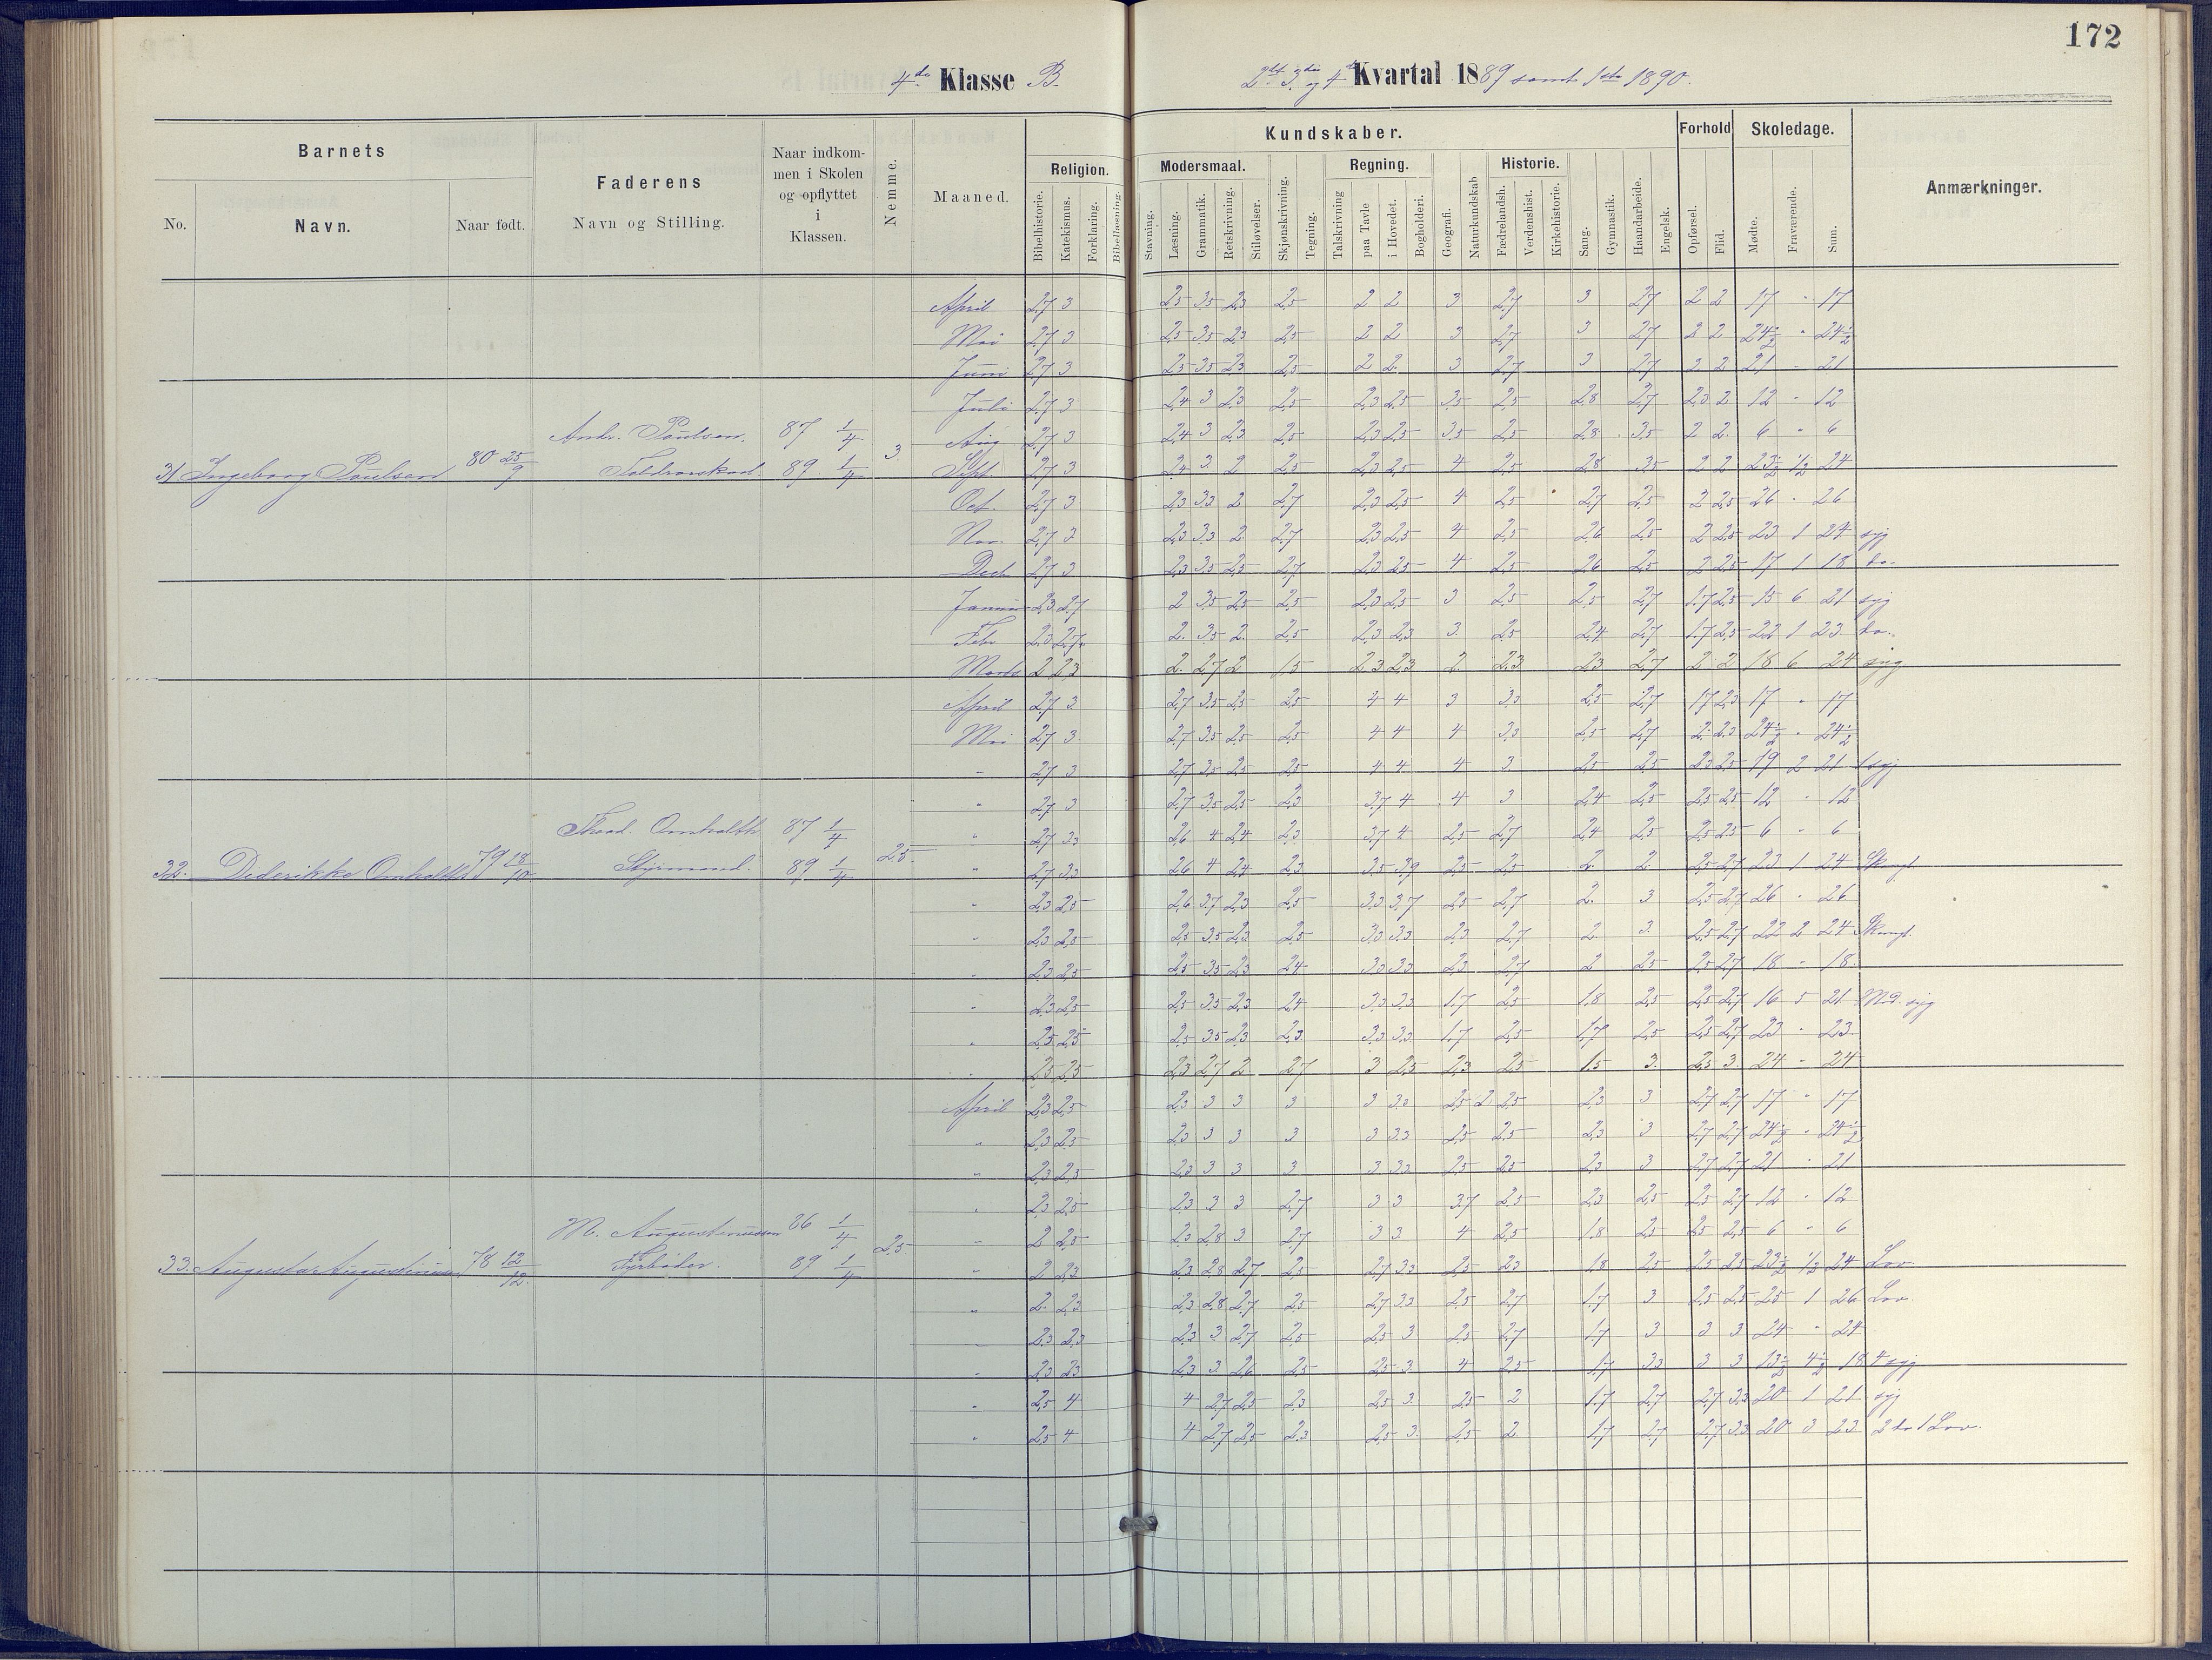 172
4de Klasse B. 2det 3die og 4de Kvartal 1889 samt 1ste 1890.
Barnets
No. Navn. Naar født.
Faderens
Navn og Stilling.
Naar indkom-
men i Skolen
og opflyttet
i
Klassen.
Nemme.
Maaned.
Kundskaber.
Religion. Modersmaal. Regning. Historie.
Bibelhistorie. Katekismus. Forklaring. Bibellæsning. Stavning. Læsning. Grammatik. Retskrivning. Stiløvelser. Skjønskrivning. Tegning. Talskrivning paa Tavle i Hovedet. Bogholderi. Geografi. Naturkundskab Fædrelandsh. Verdenshist. Kirkehistorie. Sang. Gymnastik. Haandarbeide. Engelsk.
Forhold Opførsel. Flid.
Skoledage. Mødte. Fraværende. Sum.
Anmærkninger.
April 2,7 3 2,5 3,5 2,3 2,5 2 2 3 2,7 3 2,7 2 2 17 - 17
Mai 2,7 3 2,5 3,5 2,3 2,5 2 2 3 2,7 3 2,7 2 2 24½ - 24½
Juni 2,7 3 2,5 3,5 2,3 2,5 2 2 3 2,7 3 2,7 2 2 21 - 21
Juli 2,7 3 2,4 3 2,3 2,5 2,3 2,5 3,5 2,5 2,8 2,7 2,3 2 12 - 12
Andr. Poulsen. 87 1/4 Aug 2,7 3 2,4 3 2,3 2,5 2,3 2,5 3,5 2,5 2,8 3,5 2 2 6 - 6
31 Ingeborg Poulsen 80 25/9 89 1/4 3 Sept 2,7 3 2,4 3 2 2,5 2,3 2,5 4 2,5 2,8 3,5 2 2 23½ ½ 24
Oct. 2,7 3 2,3 3,3 2 2,7 2,3 2,5 4 2,5 2,7 2,5 2 2,5 26 - 26
Nov. 2,7 3 2,3 3,3 2 2,7 2,3 2,5 4 2,5 2,6 2,5 2 2,5 23 1 24 syg
Dec 2,7 3 2,3 3,5 2,5 2,7 2,3 2,5 4 2,5 2,6 2,5 2 2,5 17 1 18 do.
Januar 2,3 2,7 2 3,5 2,5 2,5 2,3 2,5 3 2,5 2,5 2,7 1,7 2,5 15 6 21 syg
Febr 2,3 2,7 2 3,5 2 2,5 2,3 2,3 3 2,5 2,4 2,7 1,7 2,5 22 1 23 do.
Marts 2 2,3 2 2,7 2 1,5 2,3 2,3 2 2,3 2,3 2,7 2 2 18 6 24 syg
April 2,7 3 2,7 3,5 2,5 2,5 4 4 3 3,3 2,5 2,7 1,7 2,3 17 - 17
Mai 2,7 3 2,7 3,5 2,5 2,5 4 4 4 3,3 2,5 2,7 2 2,3 24½ - 24½
" 2,7 3 2,7 3,5 2,5 2,5 4 4 4 3 2,5 2,5 2,3 2,5 19 2 21 1 syg
" 2,7 3 2,7 3,5 2,5 2,3 3,7 4 4 3 2,4 2,5 2,5 2,5 12 - 12
Thead. Omholth 87 1/4 " 2,7 3,3 2,6 4 2,4 2,3 3,7 4 2,5 2,7 2,4 2,5 2,5 2,5 6 - 6
32. Dederikke Omholth 79 18/10 Styrmand 89 1/4 2,5 " 2,7 3,3 2,6 4 2,4 2,3 3,5 3,9 2,5 2,5 2 2 2,5 2,7 23 1 24
" 2,3 2,5 2,6 3,7 2,3 2,5 3,3 3,7 2,5 2,7 2 3 2,5 2,7 26 - 26
" 2,3 2,5 2,5 3,5 2,3 2,5 3,3 3,3 2,3 2,7 2 3 2,5 2,7 22 2 24
" 2,3 2,5 2,5 3,5 2,3 2,4 3,3 3,3 2,3 2,7 2 2,5 2,5 2,7 18 - 18
" 2,3 2,5 2,5 3,5 2,3 2,4 3,3 3,3 1,7 2,5 1,8 2,5 2,5 2,7 16 5 21 Md. syg
" 2,5 2,5 2,5 3,5 2,3 2,3 3,3 3,3 1,7 2,5 1,7 2,5 2,5 2,7 23 - 23
" 2,5 2,5 2,3 2,7 2 2,7 3 2,5 2,3 2,5 1,5 3 2,3 3 24 - 24
April 2,3 2,5 2,3 3 3 3 3 3,3 2,5 2 2,5 2,3 3 2,7 2,7 17 - 17
" 2,3 2,5 2,3 3 3 3 3 3,3 2,5 2,5 2,3 3 2,7 2,7 24½ - 24½
" 2,3 2,5 2,3 3 3 3 3 3,3 2,5 2,5 2,3 3 2,7 2,7 21 - 21
" 2,3 2,5 2,3 3 3 2,7 3 3 3,7 2,5 2,3 2,5 2,5 2,7 12 - 12
M. Augustinussen 86 1/4 " 2 2,5 2,3 2,8 3 2,7 3 3 4 2,5 1,8 2,5 2,5 2,5 6 - 6
33. Augusta Augustinussen 78 12/12 Fyrbøder. 89 1/4 2,5 " 2 2,3 2,3 2,8 2,7 2,5 2,7 3,3 2,5 2,3 1,8 2,5 2,5 2,5 23½ ½ 24 Lov.
" 2 2,3 2,3 2,8 2,7 2,5 2,7 3,3 2,5 2,7 1,7 3 2,5 2,5 25 1 26 Lov.
" 2,3 2,3 2,3 3 2,7 2,5 2,5 3 2,5 2,7 1,7 3 3 3 24 - 24
" 2,3 2,3 2,3 3 2,6 2,5 2,5 3 4 2,5 1,7 3,3 3 3 13½ 4½ 18 4 syg
" 2,5 4 4 2,7 2,5 2,3 2,5 3 2,5 2 1,7 2,7 2,7 3,3 20 1 21 syg
" 2,5 4 4 2,7 2,5 2,3 2,5 3 2,5 2 1,7 2,7 2,7 3,3 20 3 23 2 do 1 Lov.